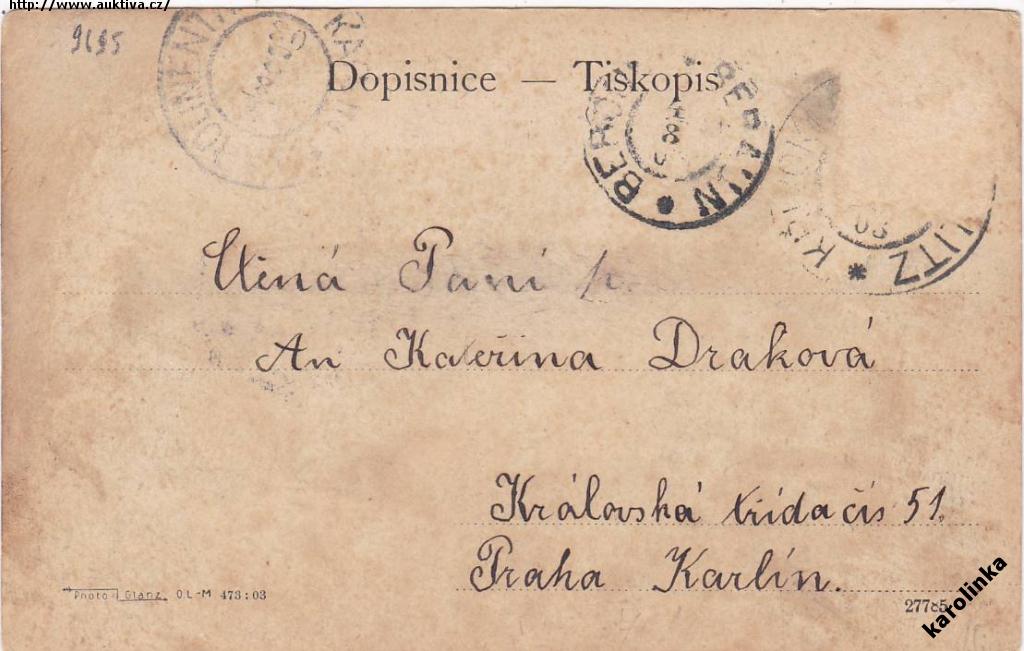 http://www.auktiva.cz/
9195
Dopisnice — Tiskopis
KAROLINENTHAL
BERAUN * BEROUN
KÖ ITZ *
Ctěná Paní p.
An Kateřina Draková
Královská třída čís 51.
Praha Karlín.
Photo Glanz O.L-M 473:03
27785
karolinka